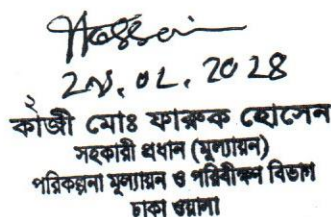 Hossain
কাজী মোঃ ফারুক হোসেন
সহকারী প্রধান (মূল্যায়ন)
পরিকল্পনা মূল্যায়ন ও পরিবীক্ষণ বিভাগ
ঢাকা ওয়াসা